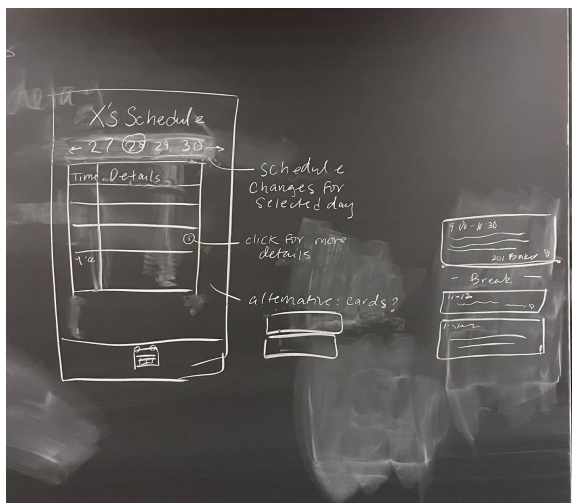 X's Schedule
← 27 28 29 30 →
Time Details
schedule
changes for
selected day
click for more
details
alternative: cards?
201 Baker
- Break -
11-12